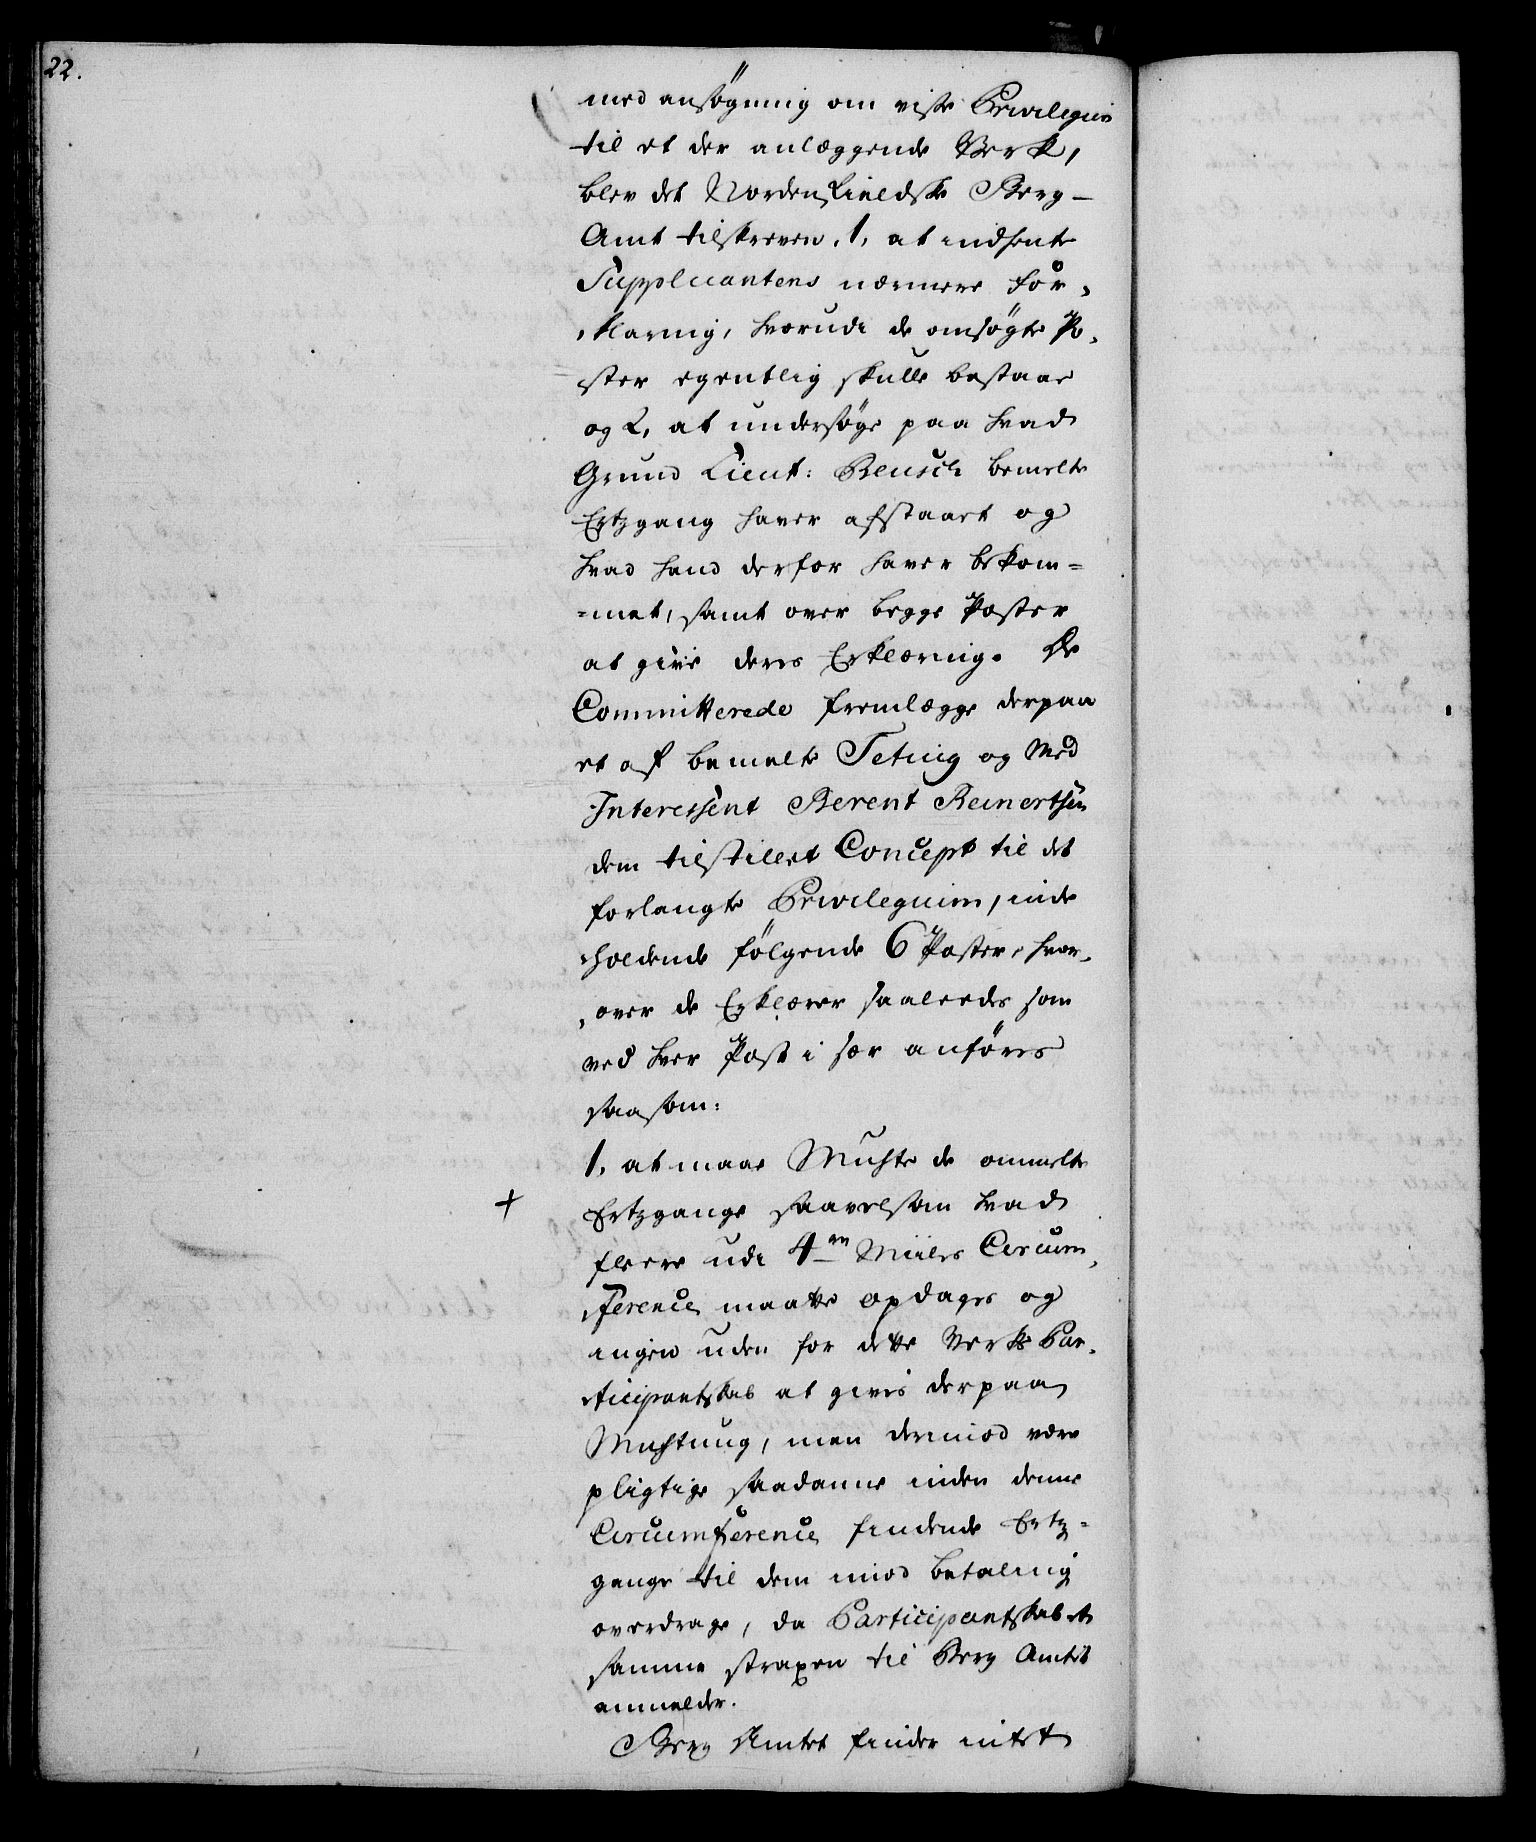 22.
med ansögning om visse Privilegier
til et der anlæggende Verk,
blev det Nordenfieldske Berg-
Amt tilskreven, 1, at indhente
Supplicantens nærmere For-
klaring, hvorudi de ansøgte Po-
ster egentlig skulle bestaae
og 2, at undersøge paa hvad
Grund Lieut: Beusch bemelte
Ertzgang haver afstaaet og
hvad hand derfor haver bekom=
=met, samt over begge Poster
at give deres Erklæring. De
Committerede fremlægge derpaa
et af bemelte Teting og Med
Interessent Berent Reinertsen
dem tilstillet Concept til det
forlangte Privilegium, inde
holdende følgende 6 Poster, hvor-
over de Erklærer saaledes som
ved hver Post i sær anføres
saasom:
1, at maae Muhte de anmelte
+ Ertzgange saavelsom hvad
fleere udi 4re Miiles Circum-
ference maatte opdages og
ingen uden for dette Verks Par-
ticipantskab at gives derpaa
Muhtung, men dermod være
pligtige saadanne inden denne
Circumference findende Ertz=
gange til dem imod betaling
overdrage, da Participantskabet
samme straxen til Berg Amtet
anmelder.
Berg Amtet finder intet